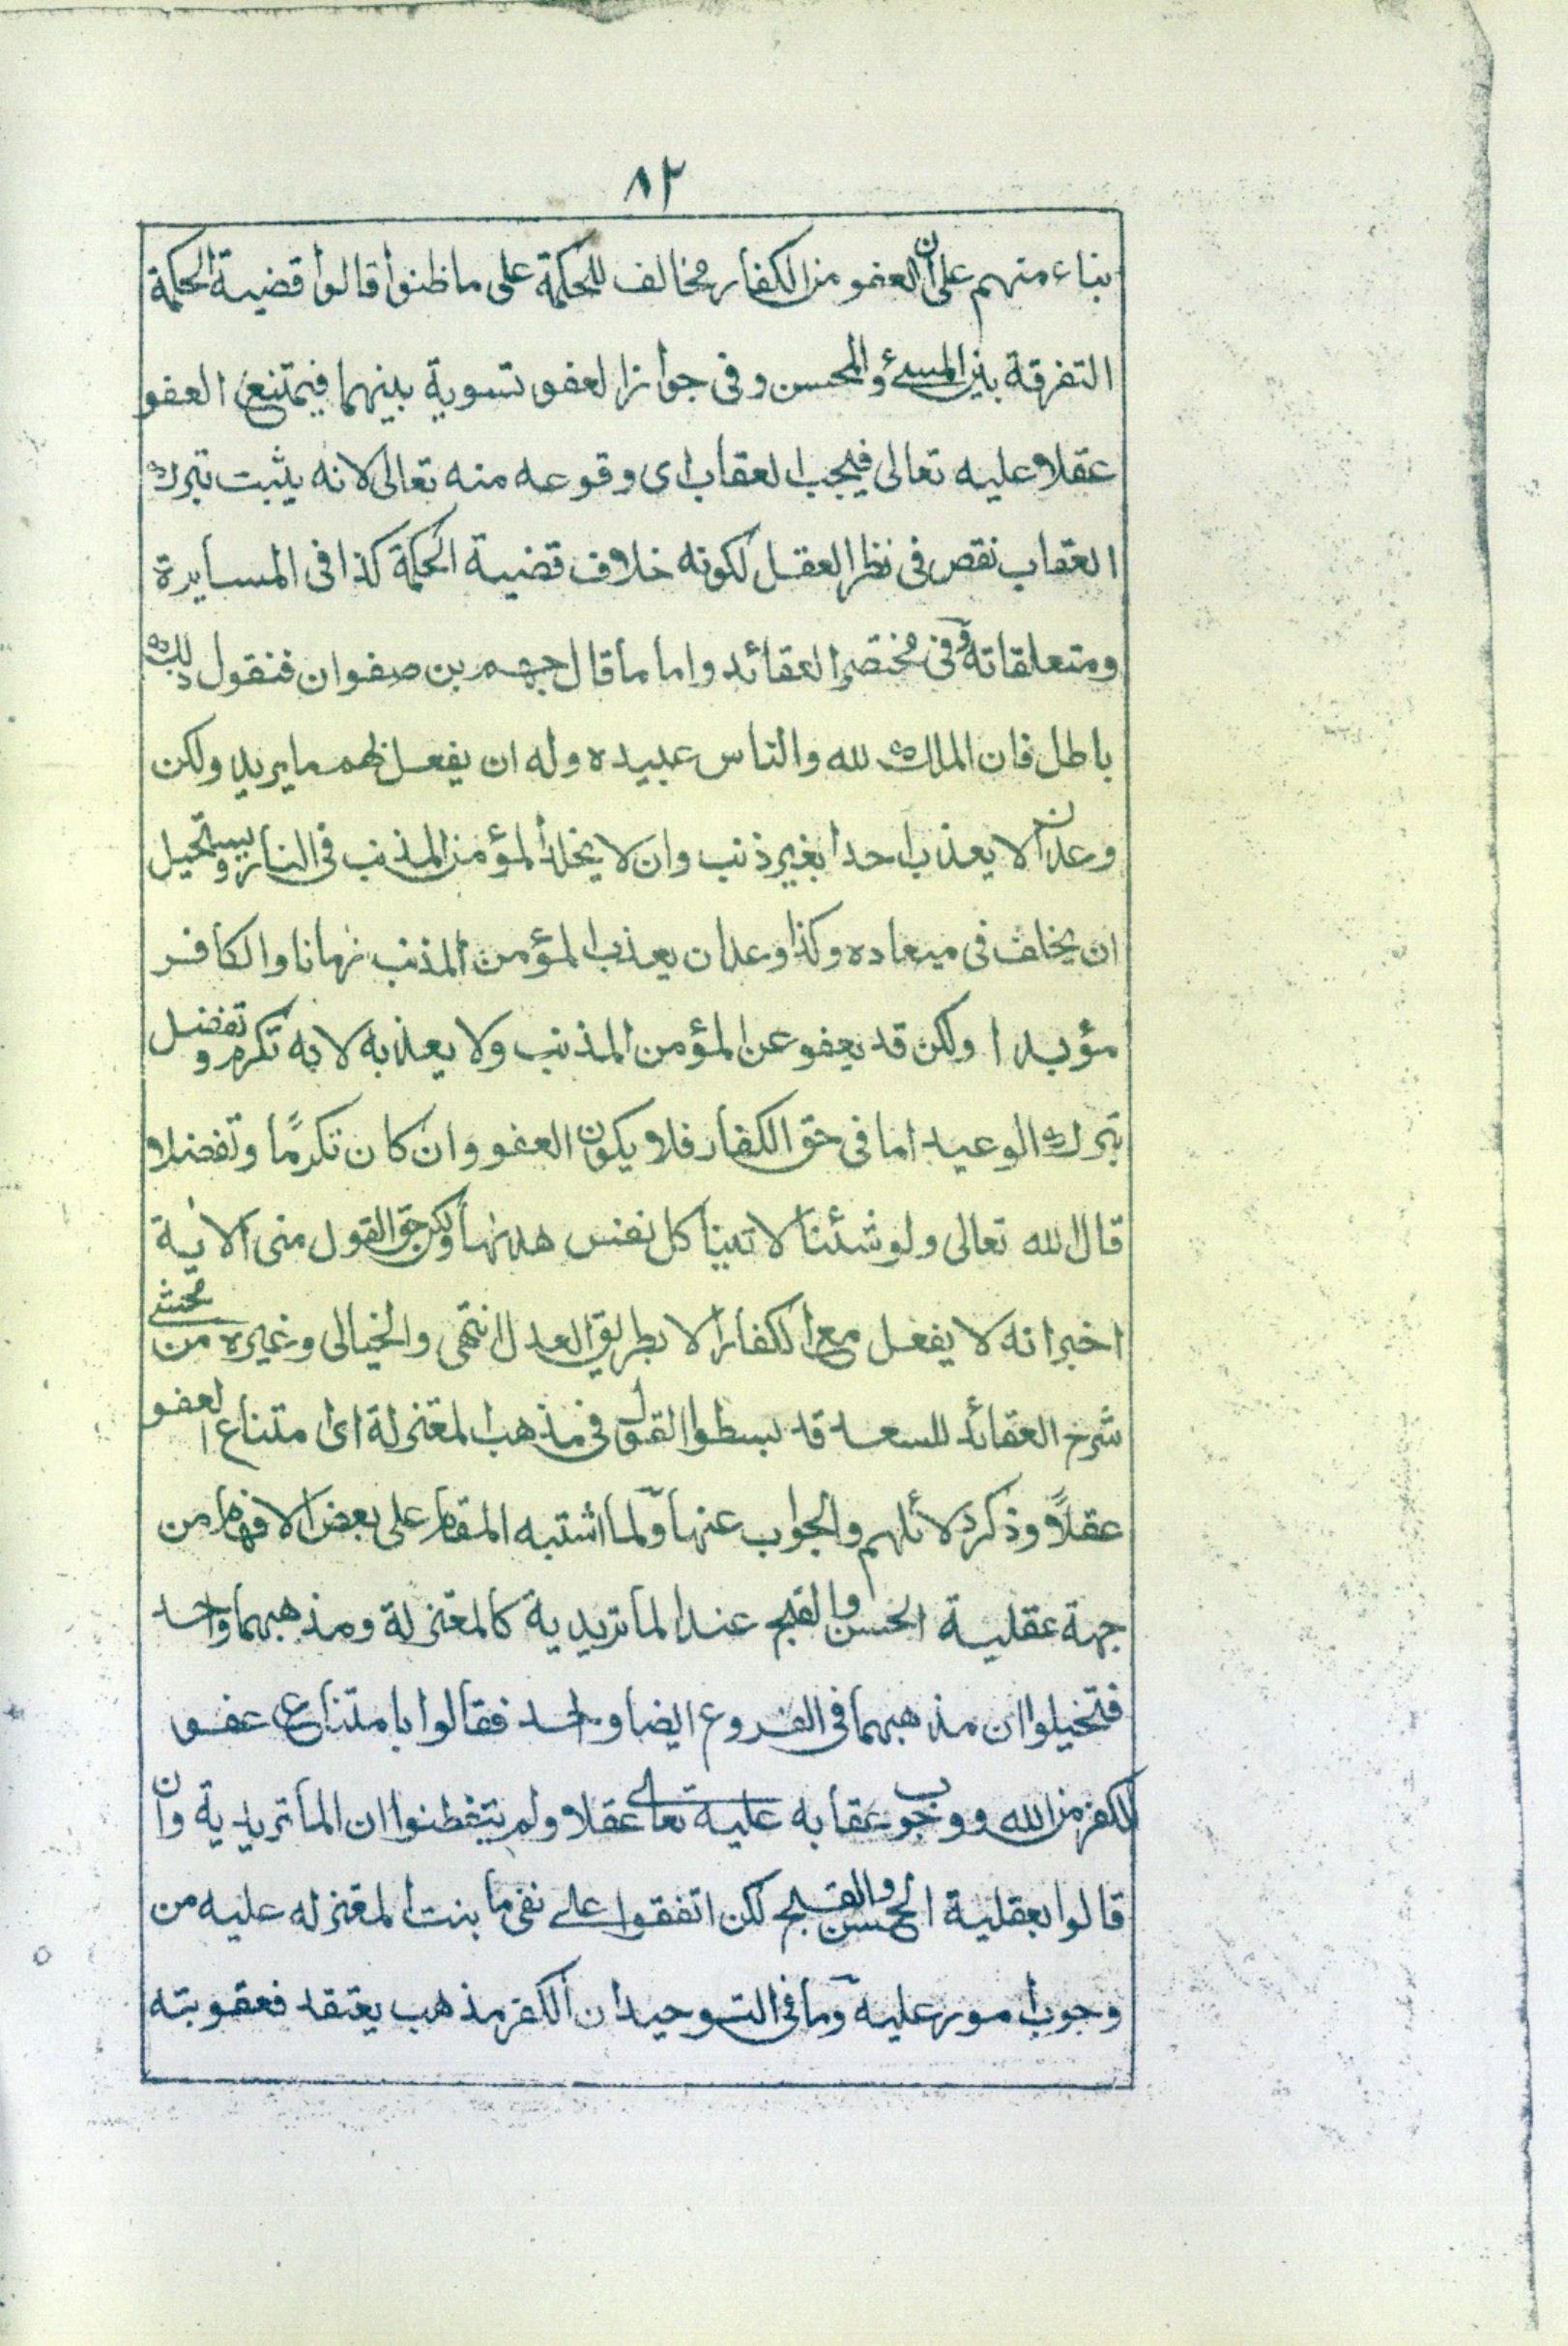 ٨٢
بناء منهم على ان العفو من الكفار مخالف للحكمة على ما ظنوا قالوا قضية الحكمة
التفرقة بين المسئ والمحسن و فى جواز العفو تسوية بينهما فيمتنع العفو
عقلا عليه تعالى فيجب العقاب اى وقوعه منه تعالى لانه يثبت بترك
العقاب نقص فى نظر العقل لكونه خلاف قضية الحكمة كذا فى المسايرة
ومتعلقاته وفى مختصر العقائد واما ما قال جهم بن صفوان فنقول ذلك
باطل فان الملك لله والناس عبيده وله ان يفعل بهم ما يريد ولكن
وعد ان لا يعذب احدا بغير ذنب وان لا يخلد المؤمن المذنب فى النار ويستحيل
ان يخلف فى ميعاده وكذا وعد ان يعذب المؤمن المذنب زمانا والكافر
مؤبدا ولكن قد يعفو عن المؤمن المذنب ولا يعذبه لانه تكرم وتفضل
بترك الوعيد اما فى حق الكفار فلا يكون العفو وان كان تكرمًا وتفضلا
قال الله تعالى ولو شئنا لاتينا كل نفس هدىها ولكن حق القول منى الاية
اخبر انه لا يفعل مع الكفار الا بطريق العدل انتهى والخيالى وغيره من محشى
شرح العقائد للسعد قد بسطوا القول فى مذهب المعتزلة اى امتناع العفو
عقلاً وذكر دلائلهم والجواب عنها ولما اشتبه المقام على بعض الافهام من
جهة عقلية الحسن والقبح عند الماتريدية كالمعتزلة ومذهبهما واحد
فتخيلوا ان مذهبهما فى الفروع ايضا واحد فقالوا بامتناع عفو
الكفر من الله ووجوب عقابه عليه تعالى عقلا ولم يتفطنوا ان الماتريدية وان
قالوا بعقلية الحسن والقبح لكن اتفقوا على نفى ما بنت المعتزله عليه من
وجوب امور عليه وما فى التوحيد ان الكفر مذهب يعتقد فعقوبته